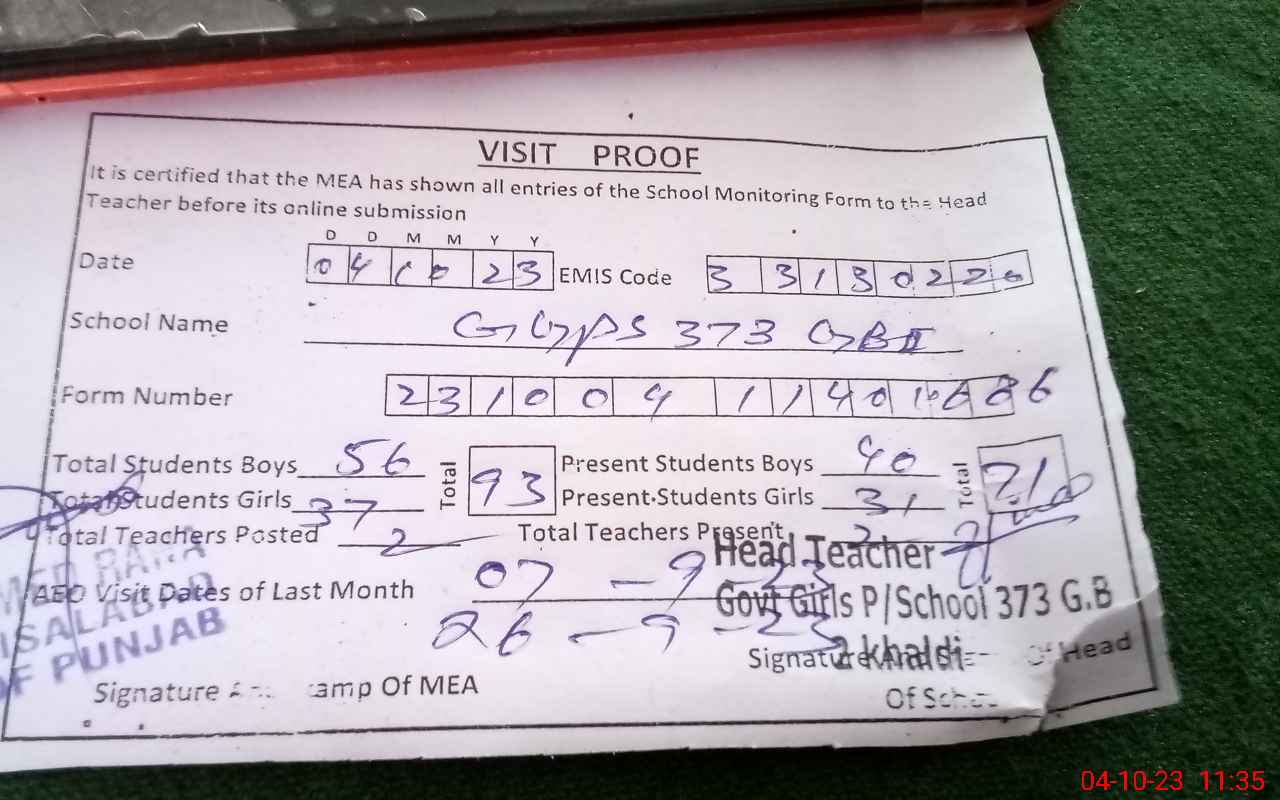 VISIT PROOF
It is certified that the MEA has shown all entries of the School Monitoring Form to the Head
Teacher before its online submission
D D M M Y Y
Date 04 10 23 EMIS Code 3 3 1 3 0 2 2 0
School Name GGPS 373 GB II
Form Number 2 3 1 0 0 4 1 1 4 0
Total Students Boys 56 Total 93 Present Students Boys 40 Total 71
Total Students Girls 37 Present Students Girls 31
Total Teachers Posted 2 Total Teachers Present 2
Head Teacher
AEO Visit Dates of Last Month 07 - 9 - 23
Govt Girls P/School 373 G.B
26 - 9 - 23
2 khaldi
Signature Of Head
Signature Of MEA
Of
OF PUNJAB
04-10-23 11:35